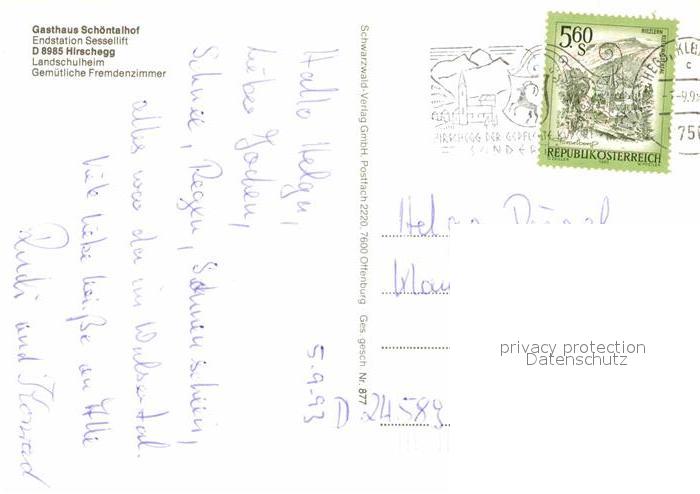 Gasthaus Schöntalhof
Endstation Sessellift
D 8985 Hirschegg
Landschulheim
Gemütliche Fremdenzimmer
Hallo Helga,
lieber Jochen,
Schnee, Regen, Sonnenschein,
alles war da im Walsertal.
Viele liebe Grüße an Alle
Rudi und Konrad
5.9.93
Schwarzwald-Verlag GmbH, Postfach 2220, 7600 Offenburg Ges. gesch. Nr. 877
5.60
S
RIEZLERN
REPUBLIK ÖSTERREICH
HIRSCHEGG DER GEPFLEGTE
Helga
D 24589
privacy protection
Datenschutz